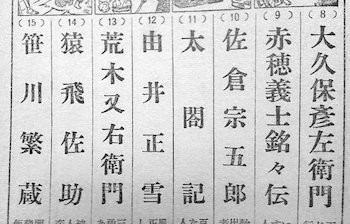 (8) 大久保彦左衛門
(9) 赤穂義士銘々伝
(10) 佐倉宗五郎
(11) 太閤記
(12) 由井正雪
(13) 荒木又右衛門
(14) 猿飛佐助
(15) 笹川繁蔵